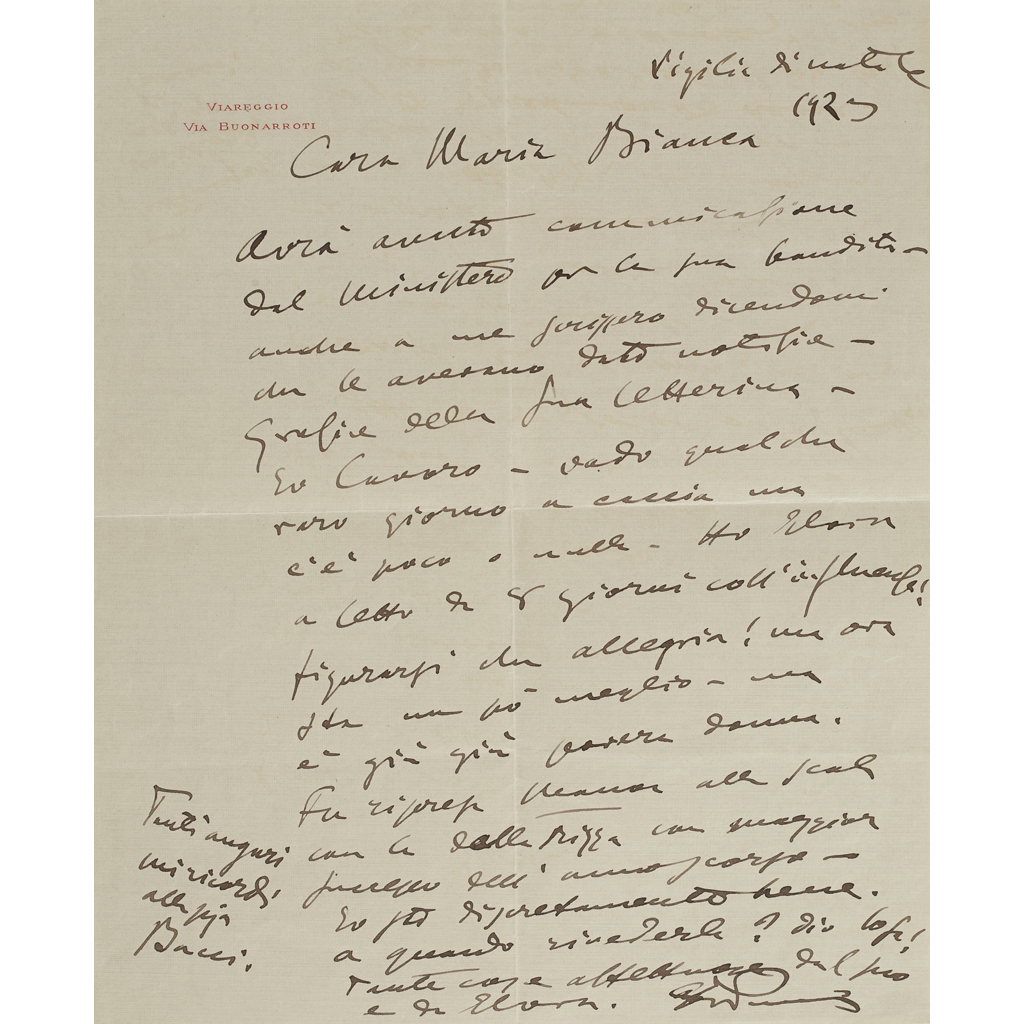 VIAREGGIO
VIA BUONARROTI
Vigilia di natale
1923
Cara Maria Bianca
Avrà avuto comunicazione
dal Ministero per la sua bandita -
anche a me scrissero dicendomi
che le avevano dato notizie -
Grazie della sua letterina -
Io lavoro - vado qualche
raro giorno a caccia ma
c'è poco o nulla - Ho Elvira
a letto da 8 giorni coll'influenza!
figurarsi che allegria! ma ora
sta un pò meglio - ma
è giù giù povera donna.
Fu ripresa Manon alla Scala
con la dalla Rizza con maggior
successo dell'anno scorso -
Io sto discretamente bene.
a quando rivederla? dio lo sa!
Tante cose affettuose dal suo
e da Elvira.
Tanti auguri
mi ricordi
alla sig.
Bacci.